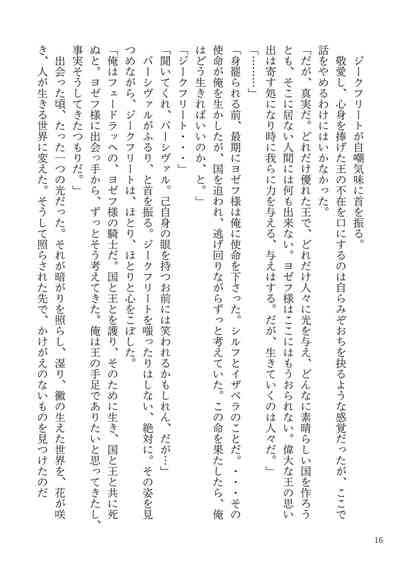 ジークフリートが自嘲気味に首を振る。
敬愛し、心身を捧げた王の不在を口にするのは自らみぞおちを抉るような感覚だったが、ここで
話をやめるわけにはいかなかった。
「だが、真実だ。どれだけ優れた王で、どれだけ人々に光を与え、どんなに素晴らしい国を作ろう
とも、そこに居ない人間には何も出来ない。ヨゼフ様はここにはもうおられない。偉大な王の思い
出は寄す処になり時に我らに力を与える、与えはする。だが、生きていくのは人々だ。」
「………」
「身罷られる前、最期にヨゼフ様は俺に使命を下さった。シルフとイザベラのことだ。・・・その
使命が俺を生かしたが、国を追われ、逃げ回りながらずっと考えていた。この命を果たしたら、俺
はどう生きればいいのか、と。」
「ジークフリート・・・」
「聞いてくれ、パーシヴァル。己自身の眼を持つお前には笑われるかもしれん、だが…」
パーシヴァルがふるり、と首を振る。ジークフリートを嗤ったりはしない、絶対に。その姿を見
つめながら、ジークフリートは、ほとり、ほとりと心をこぼした。
「俺はフェードラッへの、ヨゼフ様の騎士だ。国と王とを護り、そのために生き、国と王と共に死
ぬと。ヨゼフ様に出会った手から、ずっとそう考えてきた。俺は王の手足でありたいと思ってきたし、
事実そうしてきたつもりだ。」
出会った頃、たった一つの光だった。それが暗がりを照らし、湿り、黴の生えた世界を、花が咲
き、人が生きる世界に変えた。そうして照らされた先で、かけがえのないものを見つけたのだ
16